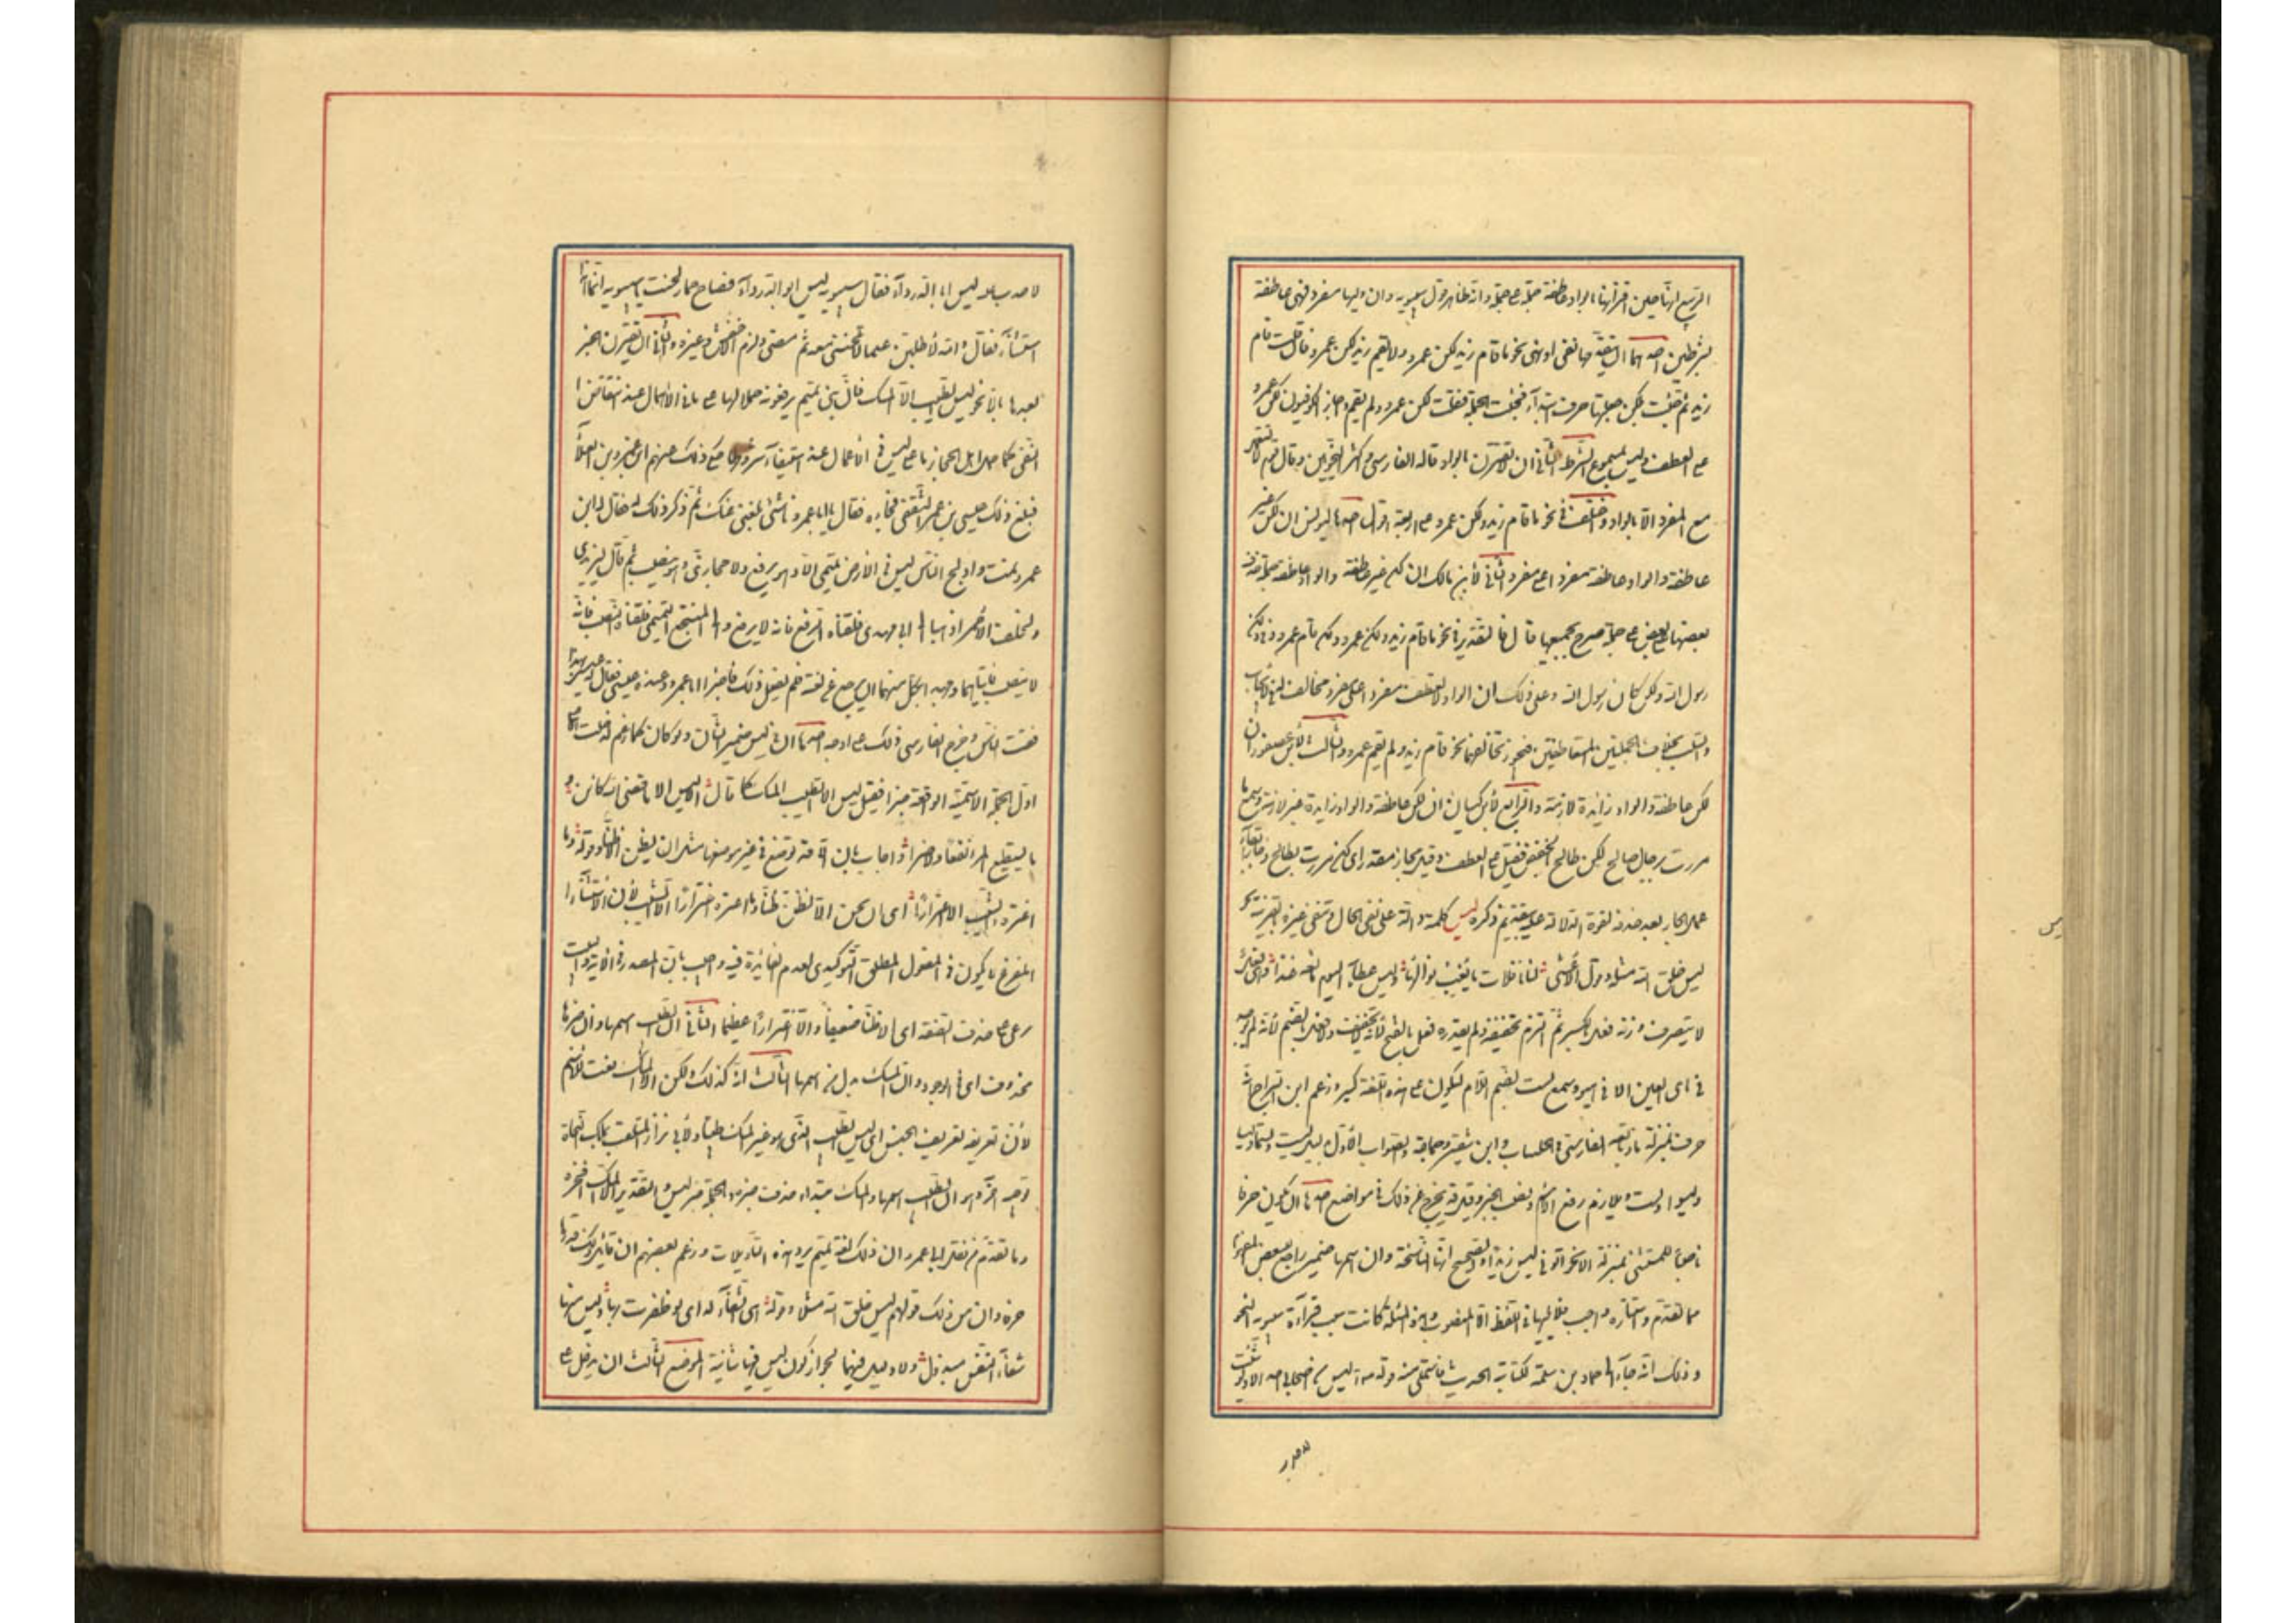 الربيع انها حين اقترانها بالواو عاطفة جملة على جملة وانه ظاهر قول سيبويه وان وليها مفرد فهى عاطفة
بشرطين احدهما ان يتقدمها نفى او نهى نحو ما قام زيد لكن عمرو ولا يقم زيد لكن عمرو فان قلت قام
زيد ثم جئت بلكن جعلتها حرف ابتدآء فجئت بالجملة فقلت لكن عمرو لم يقم واجاز الكوفيون لكن عمرو
على العطف وليس بمسموع الشرط الثانى ان لا تقترن بالواو قاله الفارسى واكثر النحويين وقال قوم لا تستعمل
مع المفرد الا بالواو واختلف فى نحو ما قام زيد ولكن عمرو على اربعة اقوال احدها ليونس ان لكن غير
عاطفة والواو عاطفة مفردا على مفرد الثانى لابن مالك ان لكن غير عاطفة والواو عاطفة لجملة حذف
بعضها على جملة صرح بجميعها قال فالتقدير فى نحو ما قام زيد ولكن عمرو ولكن قام عمرو وفى ولكن
رسول الله ولكن كان رسول الله وعلة ذلك ان الواو لا تعطف مفردا على مفرد مخالف له فى الايجاب
والسلب بخلاف الجملتين المتعاطفتين فيجوز تخالفهما نحو قام زيد ولم يقم عمرو والثالث لابن عصفور ان
لكن عاطفة والواو زائدة لازمة والرابع لابن كيسان ان لكن عاطفة والواو زايدة غير لازمة وسمع ما
مررت برجل صالح لكن طالح بالخفض فقيل على العطف وقيل بجار مقدر اى لكن مررت بطالح وجاز ابقآء
عمل الجار بعد حذفه لقوة الدلالة عليه بتقدم ذكره ليس كلمة دالة على نفى الحال وتنفى غيره بالقرينة نحو
ليس خلق الله مثله وقول الاعشى له نافلات ما يغب نوالها وليس عطآء اليوم مانعه غدا وهى فعل
لا يتصرف وزنه فعل بالكسر ثم التزم تخفيفه ولم نقدره فعل بالفتح لانه لا يخفف ولا فعل بالضم لانه لم يوجد
فى يائى العين الا فى هيؤ وسمع لست بضم اللام فيكون على هذه اللغة كهيؤ وزعم ابن السراج انه
حرف بمنزلة ما وتابعه الفارسى فى الحلبيات وابن شقير وجماعة والصواب الاول بدليل لست ولستما وليسا
وليسوا ولست وتلازم رفع الاسم ونصب الخبر وقيل قد تخرج عن ذلك فى مواضع احدها ان تكون حرفا
ناصبا للمستثنى بمنزلة الا نحو اتونى ليس زيدا والصحيح انها الناسخة وان اسمها ضمير راجع للبعض المفهوم
مما تقدم واستتاره واجب فلا يليها فى اللفظ الا المنصوب وهذه المسئلة كانت سبب قرآءة سيبويه النحو
وذلك انه جآء الى حماد بن سلمة لكتابة الحديث فاستملى منه قوله ص ليس من اصحابى احد الا ولو شئت
لاخذت عليه ليس ابا الدردآء فقال سيبويه ليس ابو الدردآء فصاح حماد لحنت يا سيبويه انما هذا
استثنآء فقال والله لاطلبن علما لا تلحننى معه ثم مضى ولزم الاخفش وغيره والثانى ان يقترن الخبر
بعدها بالا نحو ليس الطيب الا المسك فان بنى تميم يرفعونه حملا لها على ما فى الاهمال عند انتقاض
النفى كما حمل اهل الحجاز ما على ليس فى الاعمال عند استيفآء شروطها حكى ذلك عنهم ابو عمرو بن العلآء
فبلغ ذلك عيسى بن عمر الثقفى فجاءه فقال يا ابا عمرو ما شئ بلغنى عنك ثم ذكر ذلك له فقال له ابو
عمرو نمت وادلج الناس ليس فى الارض تميمى الا وهو يرفع ولا حجازى الا وهو ينصب ثم قال لليزيدى
ولخلف الاحمر اذهبا الى ابى مهدى فلقناه الرفع فانه لا يرفع والى المنتجع التميمى فلقناه النصب فانه
لا ينصب فاتياهما وجهدا بكل منهما ان يرجع عن لغته فلم يفعل ذلك فاخبرا ابا عمرو وعنده عيسى فقال له عيسى بهذا
فقت الناس وخرج الفارسى ذلك على اوجه احدها ان فى ليس ضمير الشان ولو كان كما زعم لدخلت الا على
اول الجملة الاسمية الواقعة خبرا فقيل ليس الا الطيب المسك كما قال الا ليس الا ما قضى الله كائن و
ما يستطيع المرء نفعا ولا ضرا واجاب بان الا قد توضع فى غير موضعها مثل ان نظن الا ظنا وقوله وما
اغتره الشيب الا اغترارا اى ان نحن الا نظن ظنا وما اغتره اغترارا الا الشيب لان الاستثنآء
المفرغ لا يكون فى المفعول المطلق التوكيدى لعدم الفائدة فيه واجيب بان المصدر فى الآية والبيت
نوعى على حذف الصفة اى الا ظنا ضعيفا والا اغترارا عظيما الثانى ان الطيب اسمها وان خبرها
محذوف اى فى الوجود وان المسك بدل من اسمها الثالث انه كذلك ولكن الا المسك نعت للاسم
لان تعريفه تعريف الجنس اى ليس الطيب الذى هو غير المسك طيبا ولابى نزار الملقب بملك النحاة
توجيه آخر وهو ان الطيب اسمها والمسك مبتداء حذف خبره والجملة خبر ليس والتقدير الا المسك افخره
وما تقدم من نقل ابى عمرو ان ذلك لغة تميم يرد هذه التأويلات وزعم بعضهم ان قائل ذلك قدرها
حرفا وان من ذلك قولهم ليس خلق الله مثله وقوله هى الشفآء لدائى لو ظفرت بها وليس منها
شفآء النفس مبذول ولا دليل فيهما لجواز كون ليس فيها شانية الموضع الثالث ان يدخل على